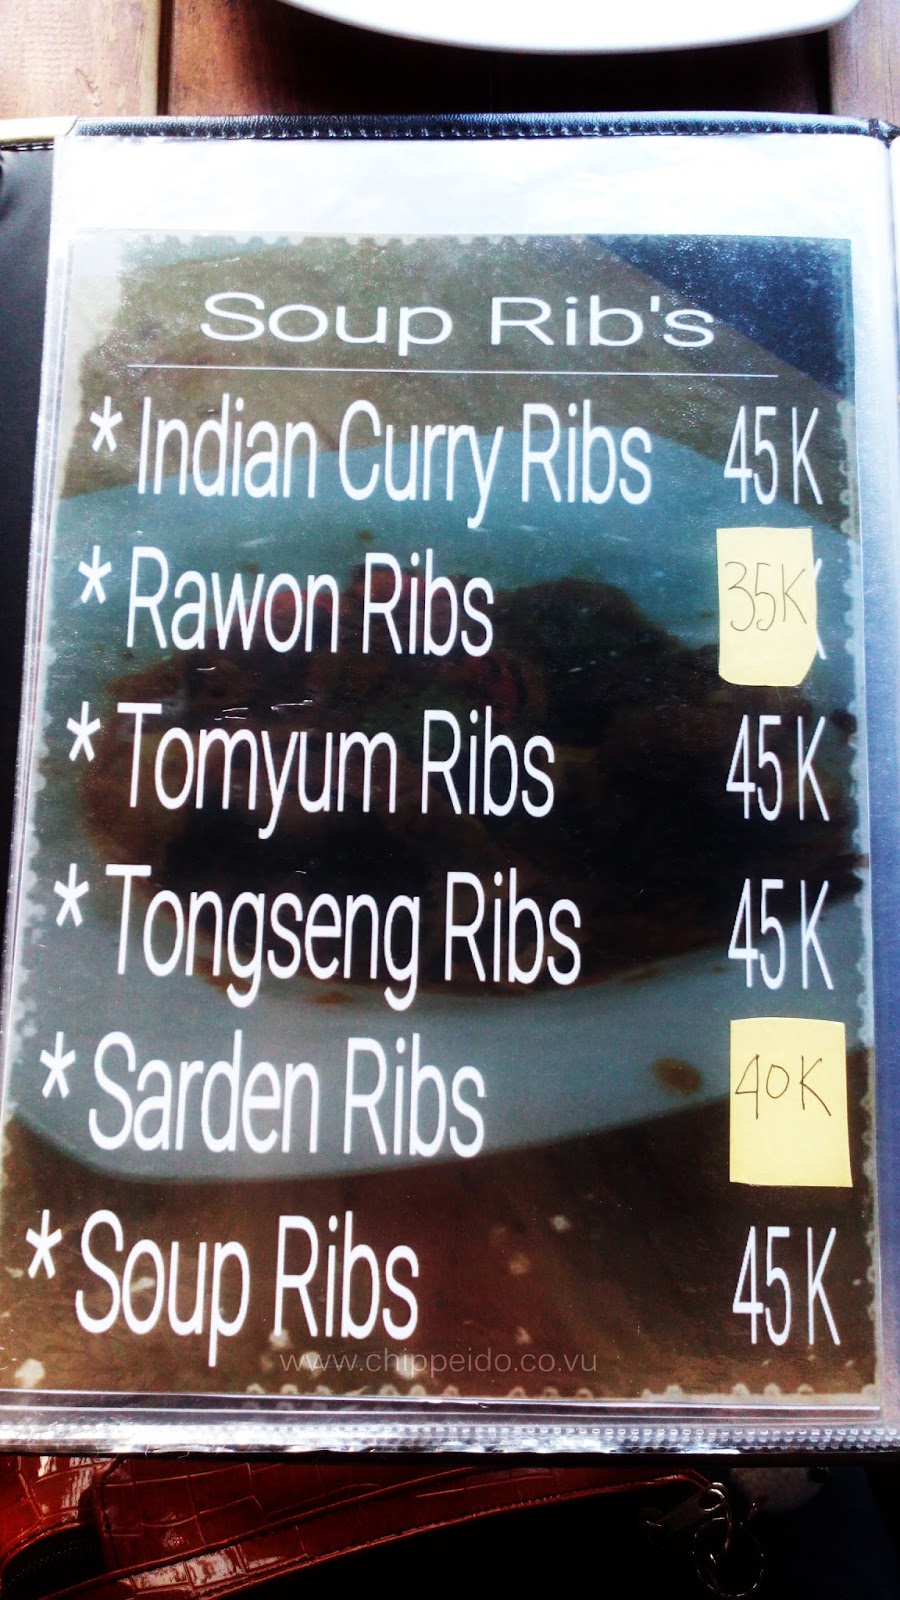 Soup Rib's
* Indian Curry Ribs 45 K
* Rawon Ribs 35K
* Tomyum Ribs 45 K
* Tongseng Ribs 45 K
* Sarden Ribs 40K
* Soup Ribs 45 K
www.chippeido.co.vu